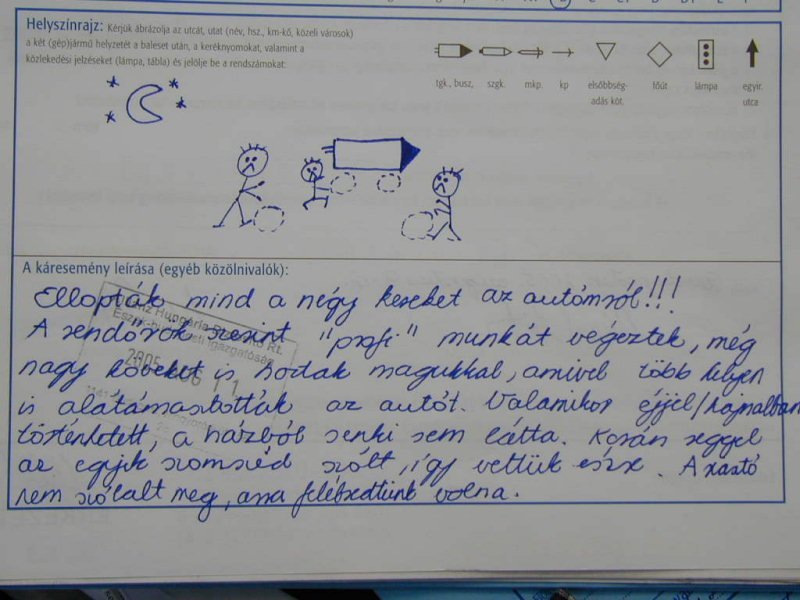 Helyszínrajz: Kérjük ábrázolja az utcát, utat (név, hsz., km-kő, közeli városok)
a két (gép)jármű helyzetét a baleset után, a keréknyomokat, valamint a
közlekedési jelzéseket (lámpa, tábla) és jelölje be a rendszámokat:
tgk., busz, szgk. mkp. kp elsőbbség- főút lámpa egyir.
adás köt. utca
A káresemény leírása (egyéb közölnivalók):
Ellopták mind a négy kereket az autómról!!!
A rendőrök szerint "profi" munkát végeztek, még
nagy köveket is hoztak magukkal, amivel több helyen
is alátámasztották az autót. Valamikor éjjel/hajnalban
történhetett, a házból senki sem látta. Korán reggel
az egyik szomszéd szólt, így vettük észre. A riasztó
nem szólalt meg, arra felébredtünk volna.
Hungária Biztosító Rt.
Igazgatóság
2005